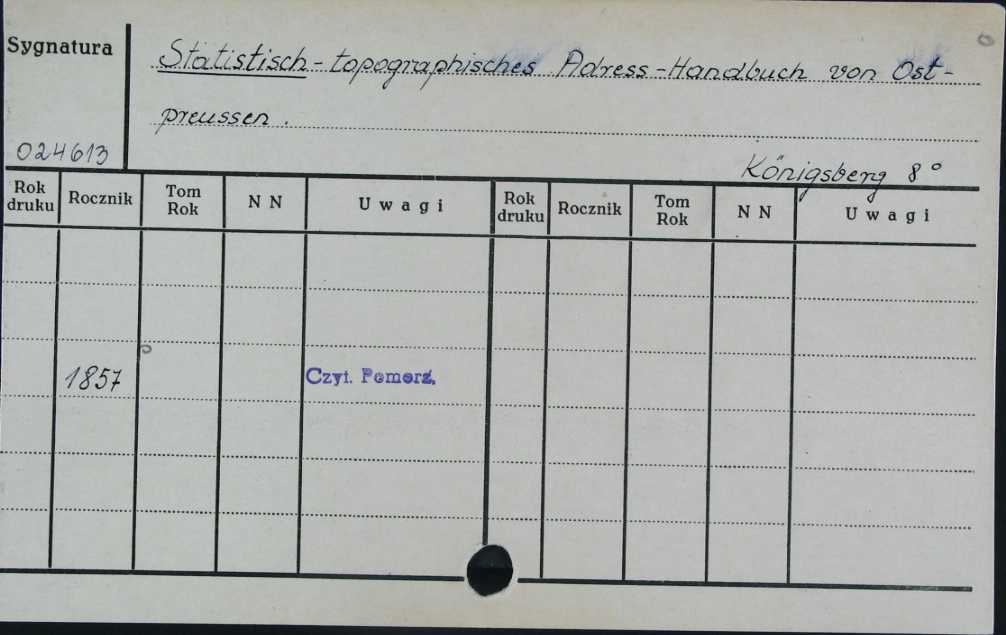 Sygnatura
Statistisch-topographisches Adress-Handbuch von Ost-
preussen.
024613
Königsberg 8°
Rok druku Rocznik Tom Rok N N Uwagi Rok druku Rocznik Tom Rok N N Uwagi
1857 Czyt. Pomorz.